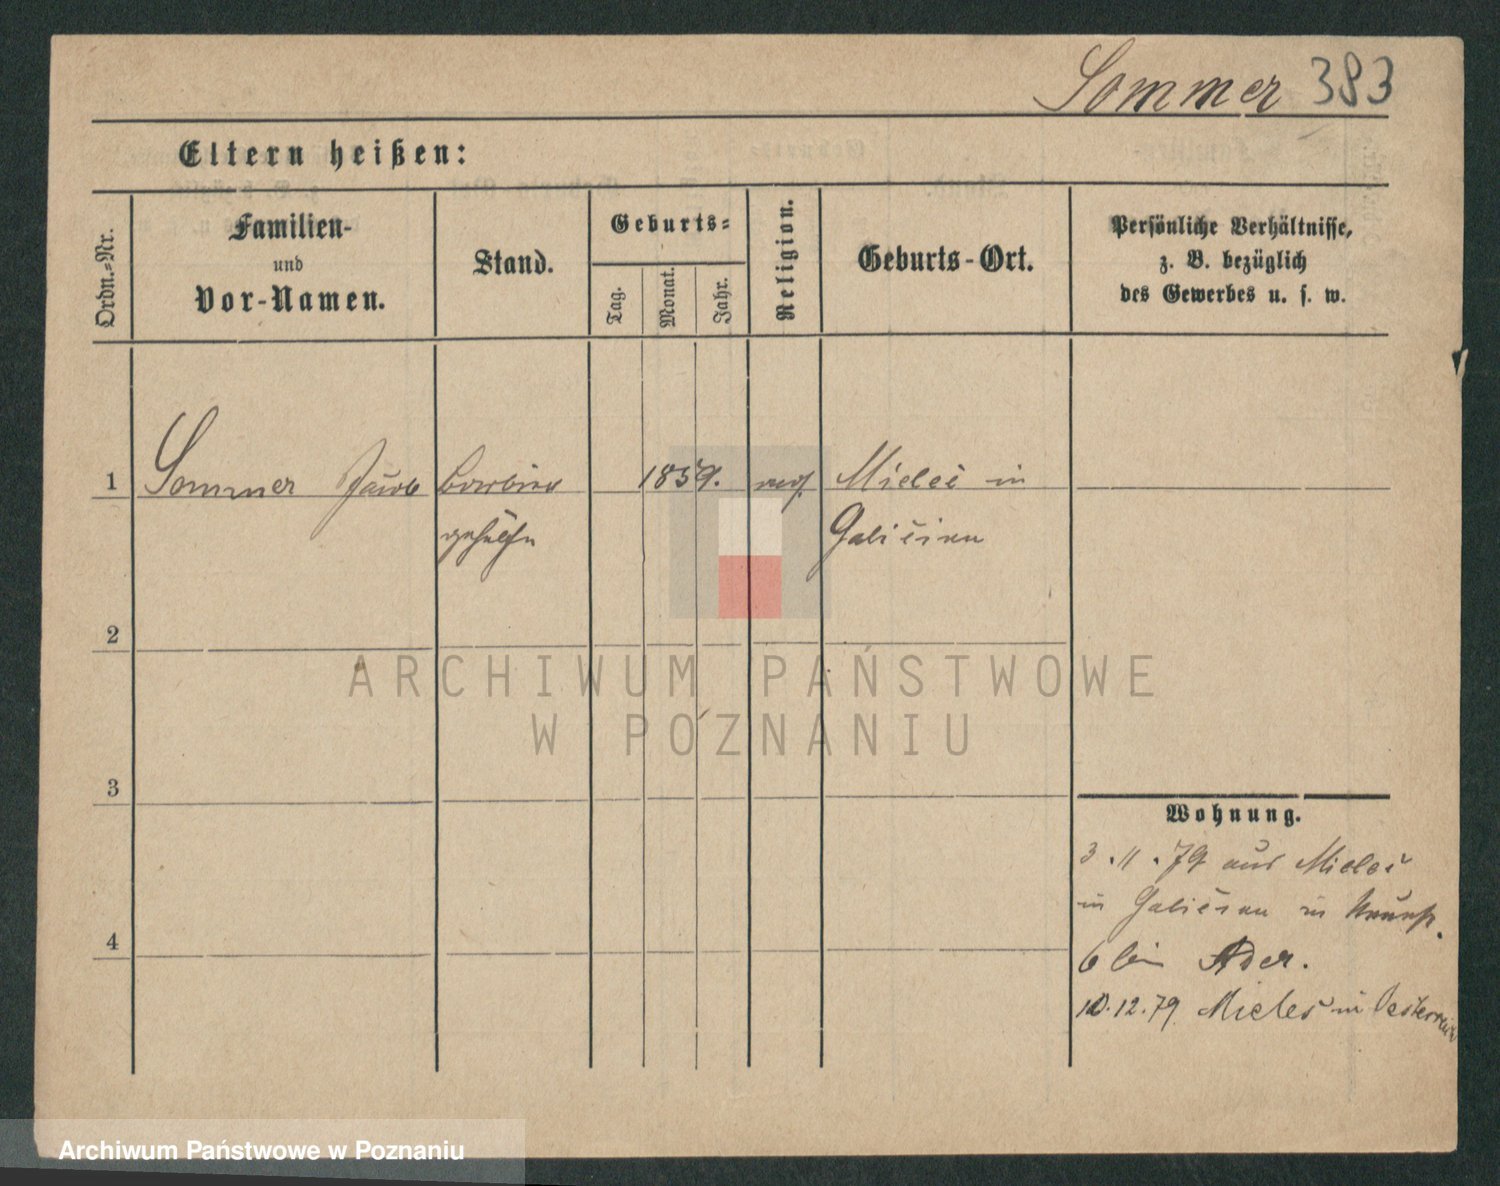 Sommer 383
Eltern heißen:
Ordn.-Nr.
Familien-
und
Vor-Namen.
Stand.
Geburts-
Tag.
Monat.
Jahr.
Religion.
Geburts-Ort.
Persönliche Verhältnisse,
z. B. bezüglich
des Gewerbes u. s. w.
1 Sommer Jacob Barbier 1859. mos. Mielec in
gehülfe Galicien
2
ARCHIWUM PAŃSTWOWE
W POZNANIU
3
Wohnung.
3.11.79 aus Mielec
in Galicien in
4
6 bei Ader.
10.12.79. Mielec in Oesterreich
Archiwum Państwowe w Poznaniu